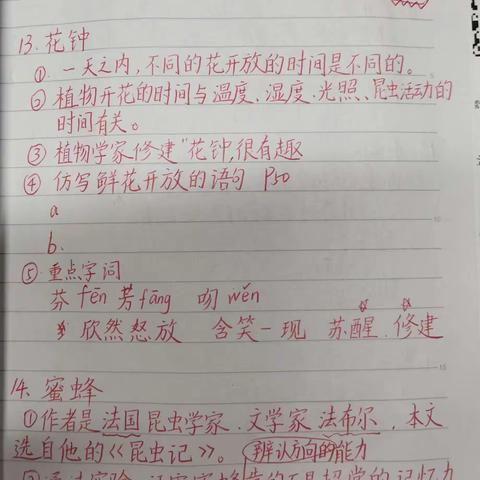 13. 花钟
① 一天之内,不同的花开放的时间是不同的。
② 植物开花的时间与温度、湿度、光照、昆虫活动的
时间有关。
③ 植物学家修建"花钟,很有趣
④ 仿写鲜花开放的语句 P50
a
b.
⑤ 重点字词
芬 fēn 芳 fāng 吻 wěn
欣然怒放 含笑一现 苏醒、修建
14. 蜜蜂
① 作者是法国昆虫学家、文学家法布尔,本文
选自他的《昆虫记》。 辨认方向的能力